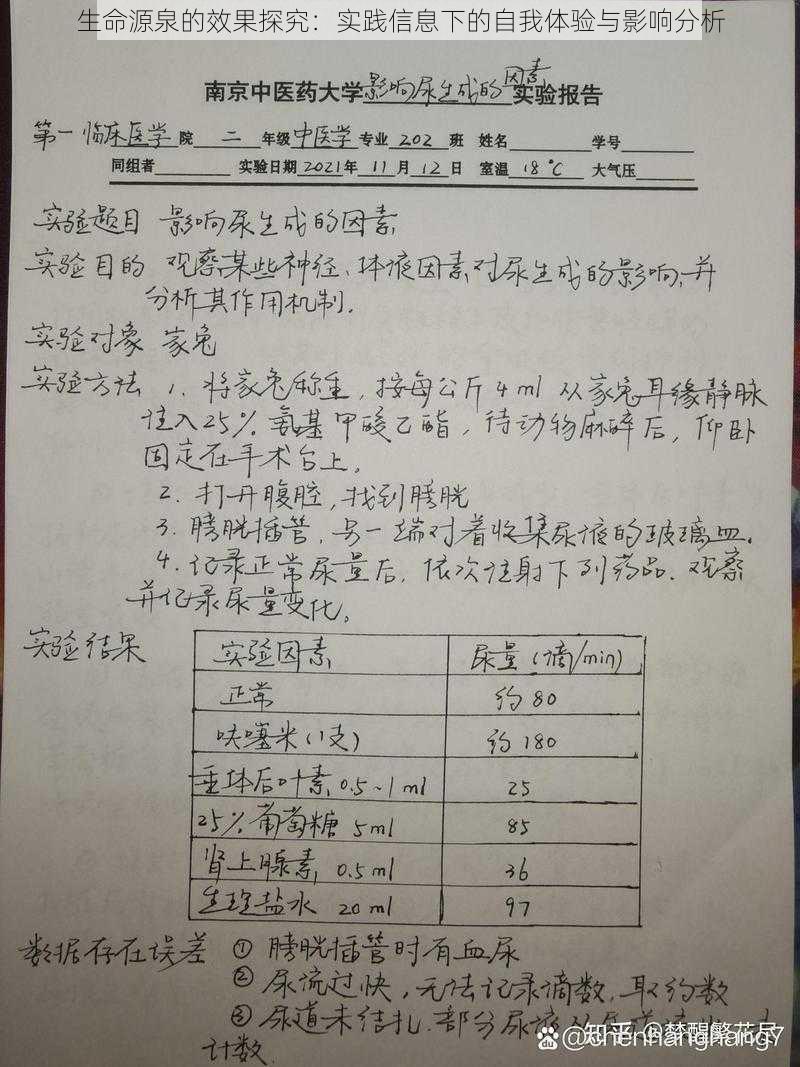 生命源泉的效果探究：实践信息下的自我体验与影响分析
南京中医药大学影响尿生成的因素实验报告
第一临床医学院 二 年级 中医学 专业 202 班 姓名 学号
同组者 实验日期 2021年 11 月 12 日 室温 18℃ 大气压
实验题目 影响尿生成的因素
实验目的 观察某些神经、体液因素对尿生成的影响,并
分析其作用机制.
实验对象 家兔
实验方法 1. 将家兔称重，按每公斤4ml 从家兔耳缘静脉
注入25% 氨基甲酸乙酯，待动物麻醉后，仰卧
固定在手术台上。
2. 打开腹腔，找到膀胱
3. 膀胱插管，另一端对着收集尿液的玻璃皿。
4. 记录正常尿量后，依次注射下列药品．观察
并记录尿量变化。
实验结果
实验因素 尿量（滴/min）
正常 约80
呋噻米（1支） 约180
垂体后叶素 0.5~1ml 25
25% 葡萄糖 5ml 85
肾上腺素 0.5ml 36
生理盐水 20ml 97
数据存在误差 ① 膀胱插管时有血尿
② 尿流过快，无法记录滴数，取约数
③ 尿道未结扎．部分尿液从尿道
计数.
知乎 @梦醒繁花尽
@chenhanghang7